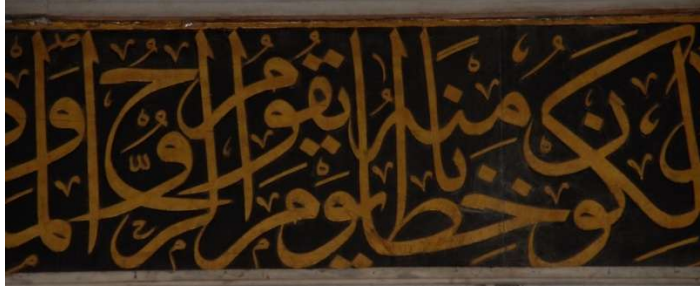 لكون منه خطابا يوم يقوم الروح والم